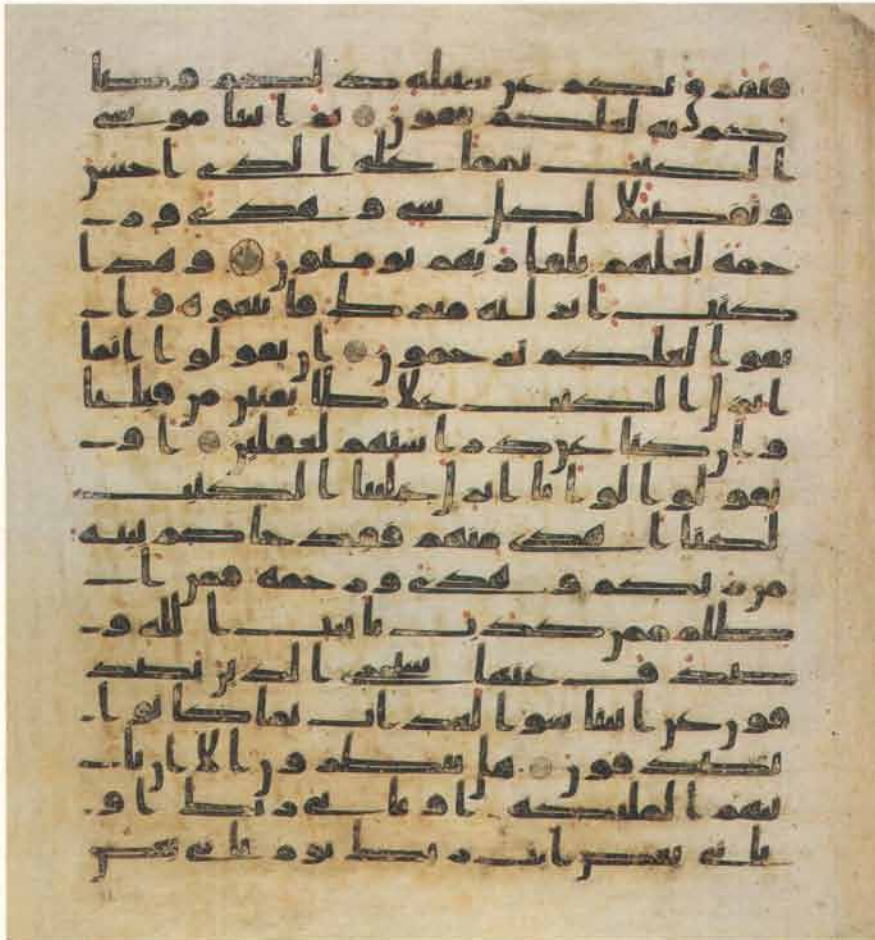 فتفرق بكم عن سبيله ذلكم وصا
كم به لعلكم تتقون ثم اتينا موسى
الكتب تماما على الذي احسن
وتفصيلا لكل شي وهدى ور
حمة لعلهم بلقا ربهم يومنون وهذا
كتب انزلنه مبرك فاتبعوه وا
تقوا لعلكم ترحمون ان تقولوا انما
انزل الكتب على طائفتين من قبلنا
وان كنا عن دراستهم لغفلين او
تقولوا لو انا انزل علينا الكتب
لكنا اهدى منهم فقد جاكم بينة
من ربكم وهدى ورحمة فمن ا
ظلم ممن كذب بايت الله و
صدف عنها سنجزي الذين يصد
فون عن ايتنا سو العذاب بما كانوا
يصدفون هل ينظرون الا ان تا
تيهم الملئكة او ياتي ربك او
ياتي بعض ايت ربك يوم ياتي بعض